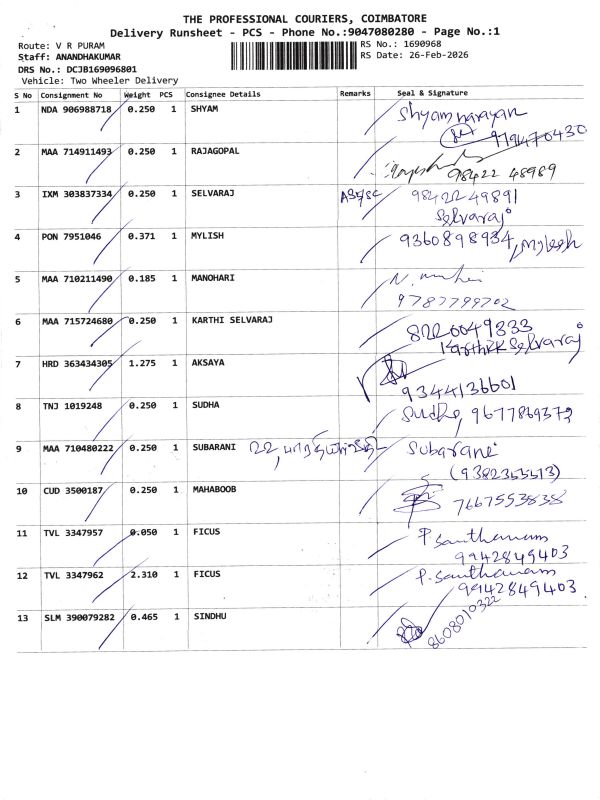 THE PROFESSIONAL COURIERS, COIMBATORE
Delivery Runsheet - PCS - Phone No.:9047080280 - Page No.:1
Route: V R PURAM
RS No.: 1690968
Staff: ANANDHAKUMAR
RS Date: 26-Feb-2026
DRS No.: DCJB169096801
Vehicle: Two Wheeler Delivery
S No Consignment No Weight PCS Consignee Details Remarks Seal & Signature
1 NDA 906988718 0.250 1 SHYAM Shyam narayan
2 MAA 714911493 0.250 1 RAJAGOPAL
98422 48989
3 IXM 303837334 0.250 1 SELVARAJ 9842249891
Selvaraj
4 PON 7951046 0.371 1 MYLISH 9360898934, Mylesh
5 MAA 710211490 0.185 1 MANOHARI
9787799702
6 MAA 715724680 0.250 1 KARTHI SELVARAJ 8220049333
Selvaraj
7 HRD 363434305 1.275 1 AKSAYA
9344136601
8 TNJ 1019248 0.250 1 SUDHA Sudha, 9677869373
9 MAA 710480222 0.250 1 SUBARANI 22, Subarani
(9382353513)
10 CUD 3500187 0.250 1 MAHABOOB
7667553838
11 TVL 3347957 0.050 1 FICUS P. Santhanam
9942849403
12 TVL 3347962 2.310 1 FICUS P. Santhanam
9942849403
13 SLM 390079282 0.465 1 SINDHU
8608010322